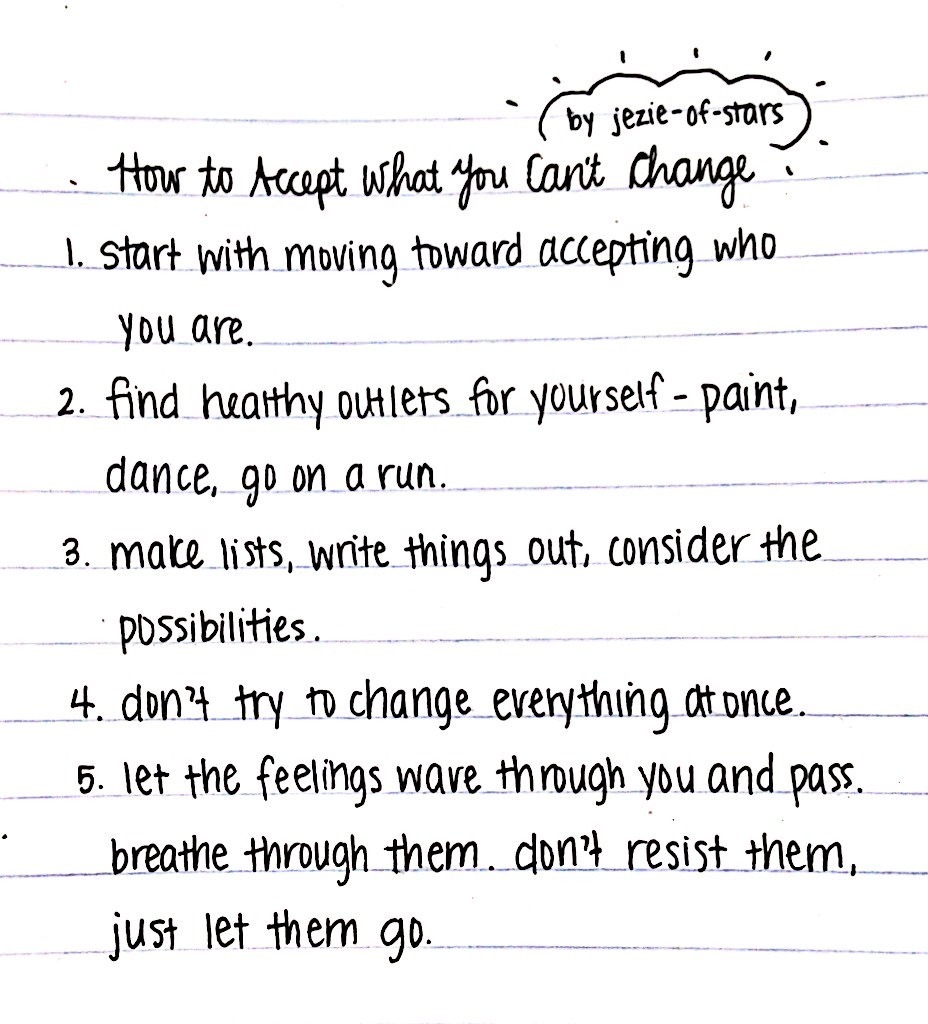 by jezie-of-stars
How to Accept What You Can't Change
1. start with moving toward accepting who
you are.
2. find healthy outlets for yourself - paint,
dance, go on a run.
3. make lists, write things out, consider the
possibilities.
4. don't try to change everything at once.
5. let the feelings wave through you and pass.
breathe through them. don't resist them,
just let them go.